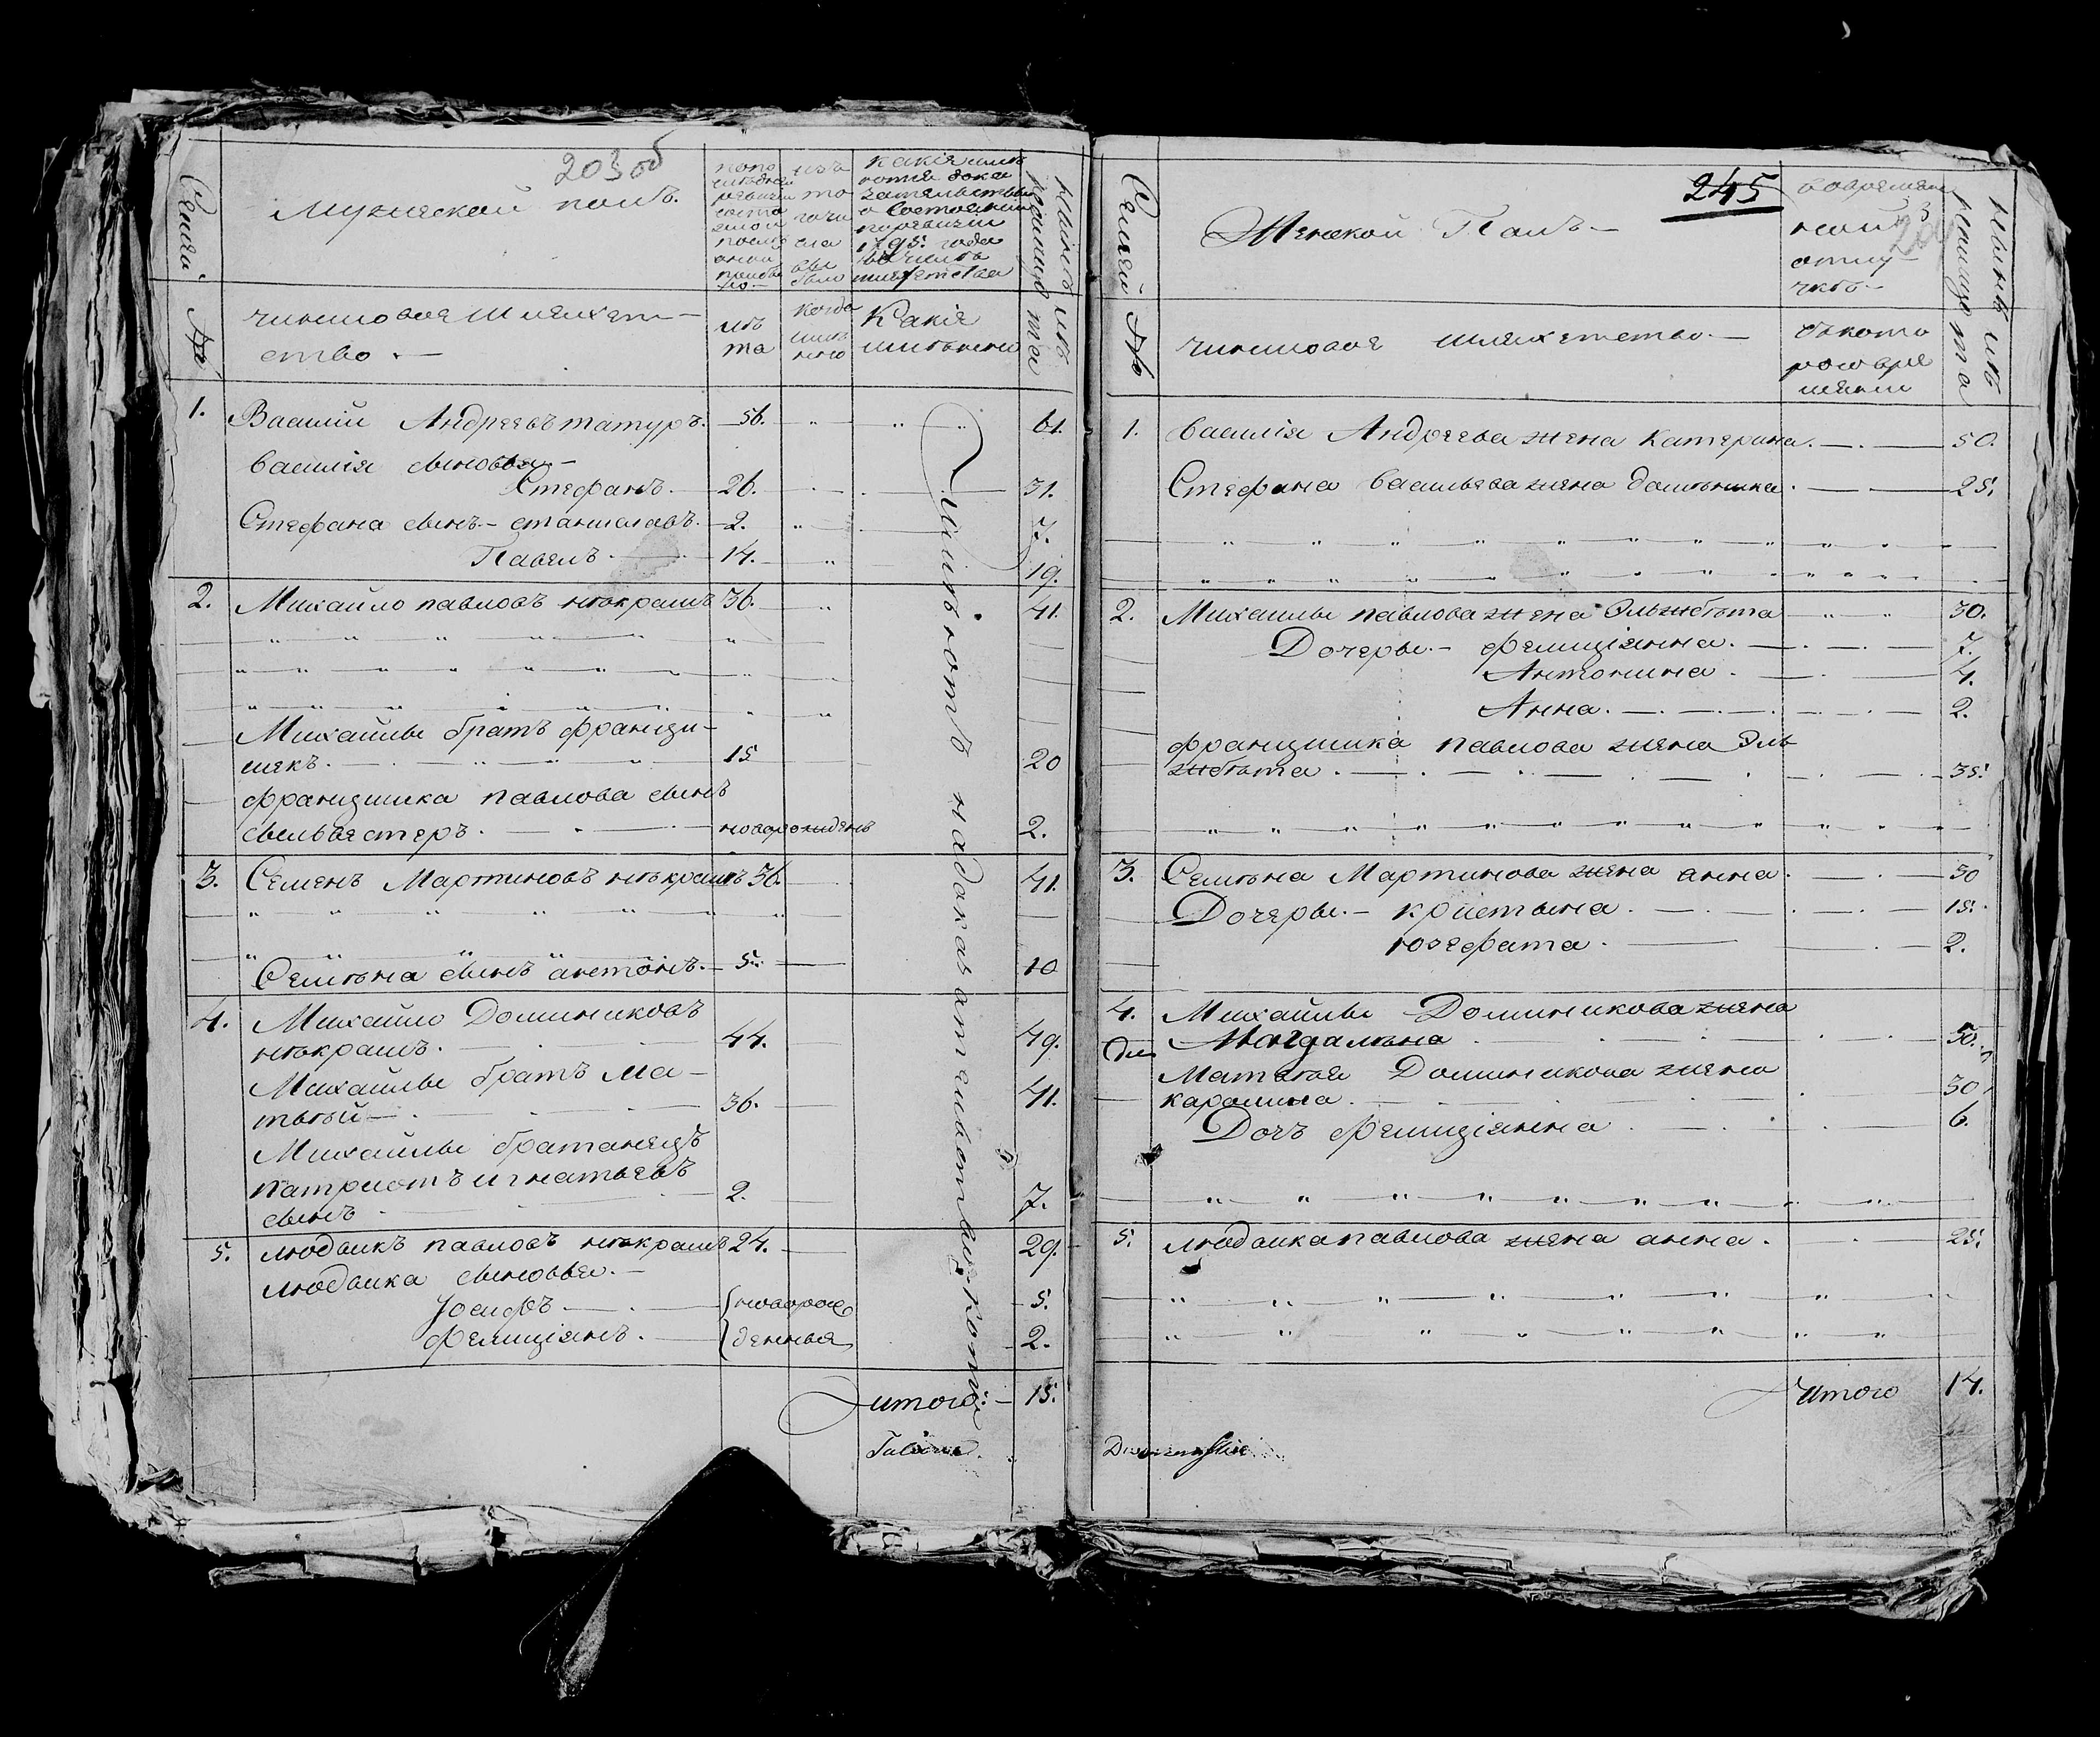 203 об
Семьи
№
Мужеской полъ.
чиншовое шляхет-
ство. —
По по
следней
ревизии
состо
яло и
после
оной
прибы
ло. —
лѣ
та
изъ
то
го чи
сла
вы
было
Когда
имъ
нно
Какія имѣ
ются дока
зательствы
о состоянии
по ревизіи
1795: года
въ чинѣ
шляхетства
Какія
имѣнно
нынѣ на лицо
лѣта
1. Василій Андреевъ татуръ. 56. 61.
Василія сыновья —
Стефанъ. 26. 31.
Стефана сынъ — станиславъ. 2. 7.
Павелъ. 14. 19.
2. Михайло павловъ нѣкрашъ 36. 41.
Михайлы братъ франци-
шекъ. 15 20
францишка павлова сынъ
сыльвестеръ. новорожденъ 2.
3. Семенъ Мартиновъ нѣкрашъ 36. 41.
Семѣна сынъ антонъ. 5. 10
4. Михайло Доминиковъ
нѣкрашъ. 44. 49.
Михайлы братъ Ма-
тьѣй — 36. 41.
Михайлы братанецъ
патриотъ игнатьевъ
сынъ 2. 7.
5. людвикъ павловъ нѣкрашъ 24. 29.
людвика сыновья. —
Іосифъ — новорож 5.
Фелиціянъ. денныя 2.
итого: — 15.
245
Семьи
№
Женской Полъ —
чиншовое шляхетство. —
во времен
ной
отлу-
чкѣ. —
съ кото
рого вре
мени
нынѣ на лицо
лѣта
1. василія Андреева жена Катерина. 50.
Стефана васильева жена доминика. 25.
2. Михайлы павлова жена Эльжбѣта 30.
Дочеры. — фелиціянна. 7.
Антонина. 4.
Анна. 2.
францишка павлова жена Эль
жбѣта. 35.
3. Семѣна Мартинова жена анна. 30
Дочеры. — кристына. 15.
юзефата. 2.
4. Михайлы Доминикова жена
Магдалѣна 50.
Матьѣя Доминикова жена
каролина. 30.
Дочъ фелиціянна 6.
5. людвика павлова жена анна. 25.
итого 14.